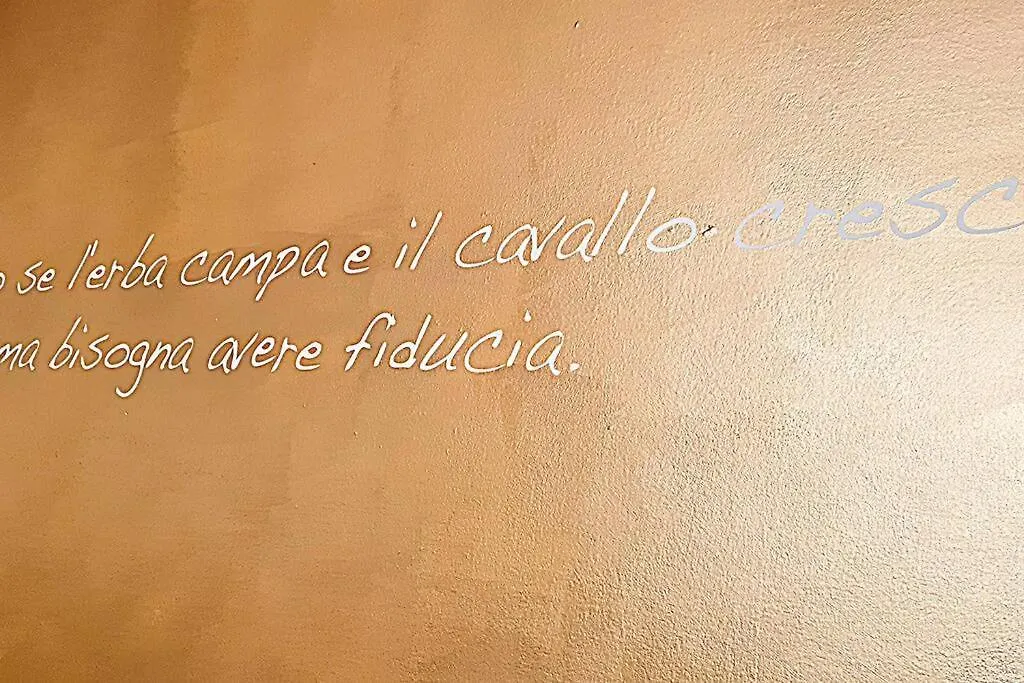 se l'erba campa e il cavallo cresc
ma bisogna avere fiducia.